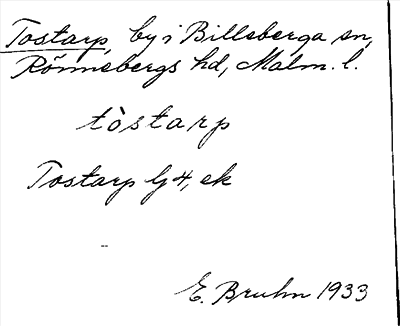 Tostarp, by i Billeberga sn,
Rönnebergs hd, Malm. l.
tòstarp
Tostarp G 4, ek
E. Bruhn 1933